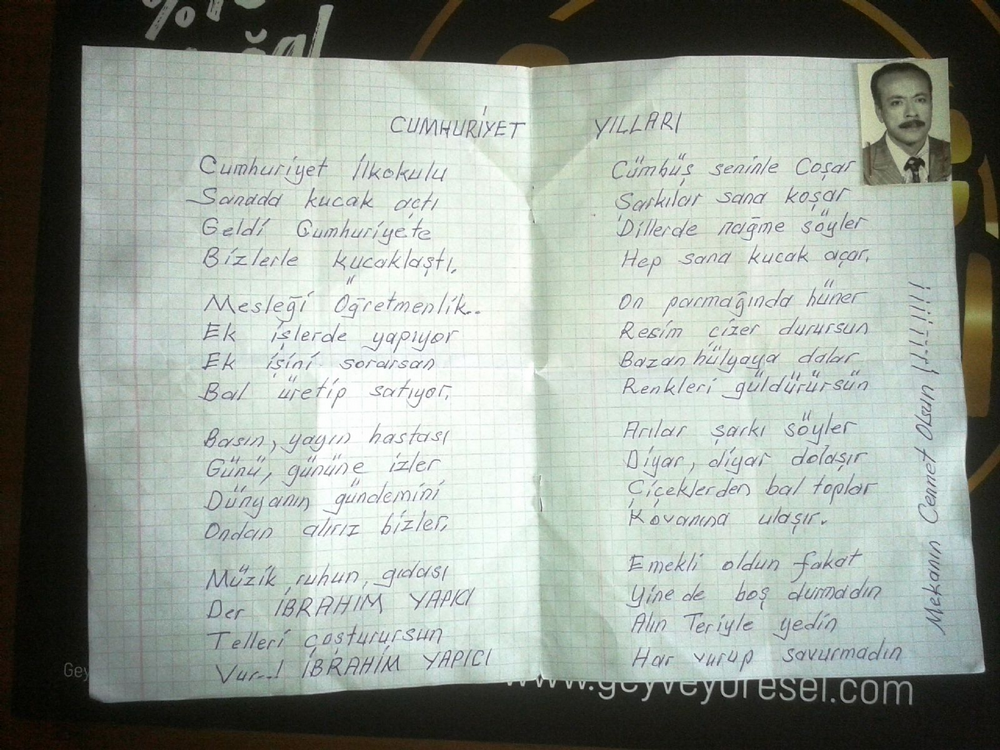 CUMHURİYET YILLARI
Cumhuriyet İlkokulu
Sanada kucak açtı
Geldi Cumhuriyete
Bizlerle kucaklaştı.
Mesleği Öğretmenlik..
Ek işlerde yapıyor
Ek işini sorarsan
Bal üretip satıyor.
Basın, yayın hastası
Günü, gününe izler
Dünyanın gündemini
Ondan alırız bizler.
Müzik, ruhun, gıdası
Der İBRAHİM YAPICI
Telleri coşturursun
Vur..! İBRAHİM YAPICI
Cümbüş seninle Coşar
Şarkılar sana koşar
Dillerde nağme söyler
Hep sana kucak açar.
On parmağında hüner
Resim çizer durursun
Bazan hülyaya dalar
Renkleri güldürürsün
Arılar şarkı söyler
Diyar, diyar dolaşır
Çiçeklerden bal toplar
Kovanına ulaşır.
Emekli oldun fakat
Yine de boş durmadın
Alın Teriyle yedin
Har vurup savurmadın
Mekanın Cennet Olsun !!!!!!!!
Gey
www.geyveyoresel.com